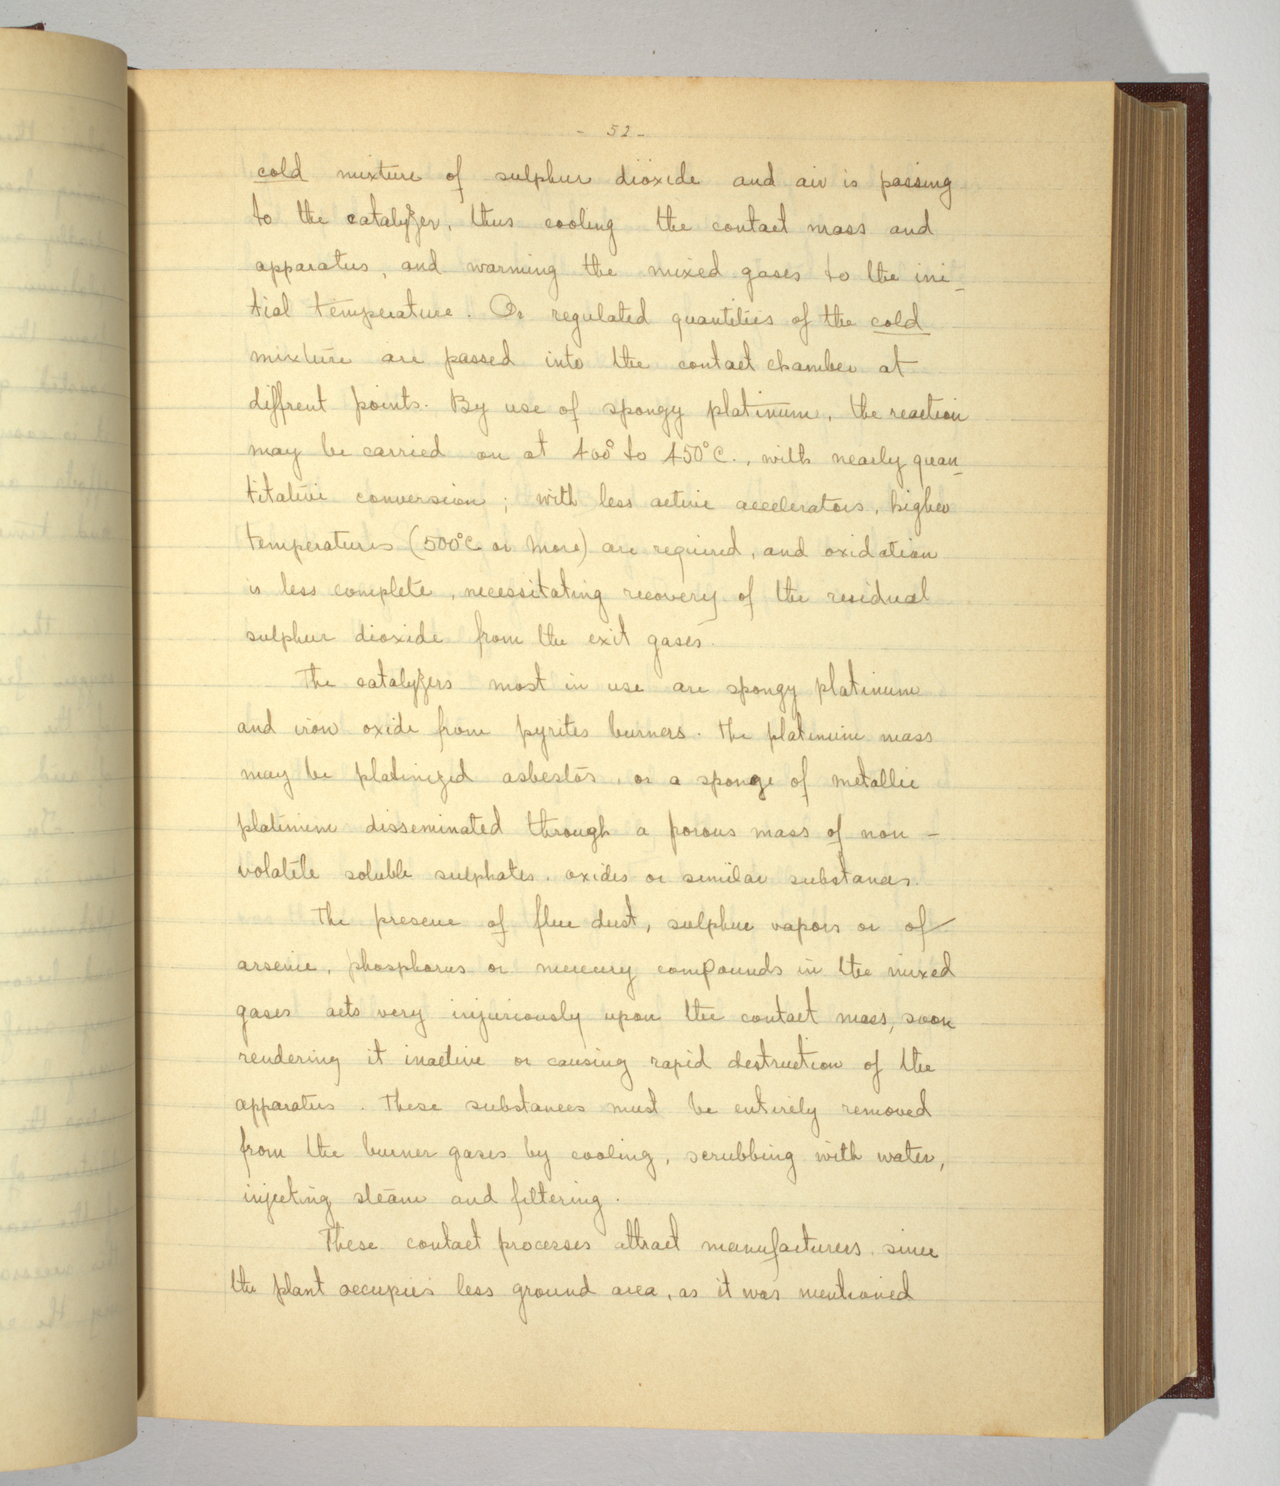 - 52 -
cold mixture of sulphur dioxide and air is passing
to the catalyzer, thus cooling the contact mass and
apparatus, and warming the mixed gases to the ini-
tial temperature. Or regulated quantities of the cold
mixture are passed into the contact chamber at
diffrent points. By use of spongy platinum, the reaction
may be carried on at 400° to 450°C., with nearly quan-
titative conversion; with less active accelerators, higher
temperatures (500°C or more) are required, and oxidation
is less complete, necessitating recovery of the residual
sulphur dioxide from the exit gases.
The catalyzers most in use are spongy platinum
and iron oxide from pyrites burners. The platinum mass
may be platinized asbestos, or a sponge of metallic
platinum disseminated through a porous mass of non-
volatile soluble sulphates, oxides or similar substances.
The presence of flue dust, sulphur vapors or of
arsenic, phosphorus or mercury compounds in the mixed
gases acts very injuriously upon the contact mass, soon
rendering it inactive or causing rapid destruction of the
apparatus. These substances must be entirely removed
from the burner gases by cooling, scrubbing with water,
injecting steam and filtering.
These contact processes attract manufacturers since
the plant occupies less ground area, as it was mentioned